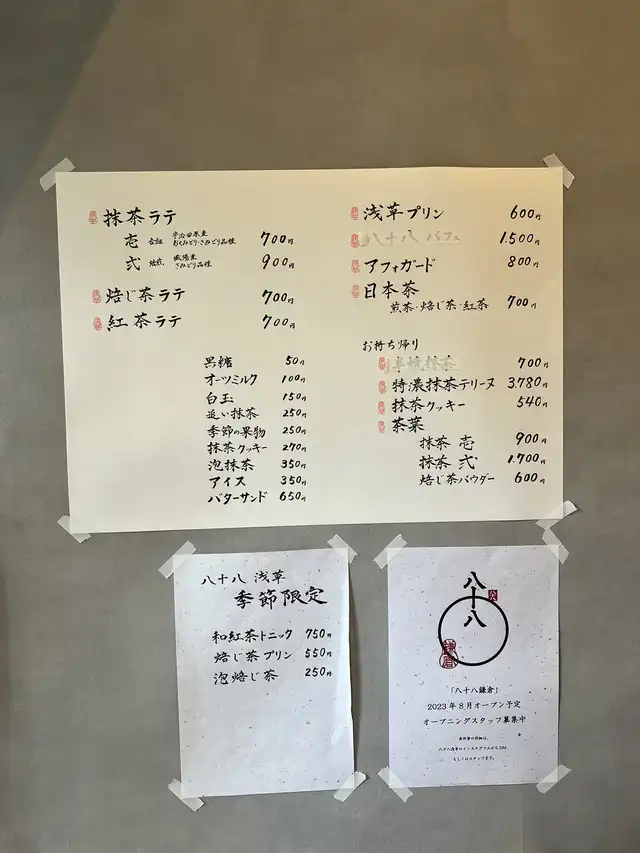 抹茶ラテ
壱 合組 宇治田原産 おくみどり・さみどり品種 700円
弐 焙煎 城陽産 さみどり品種 900円
焙じ茶ラテ 700円
紅茶ラテ 700円
黒糖 50円
オーツミルク 100円
白玉 150円
追い抹茶 250円
季節の果物 250円
抹茶クッキー 270円
泡抹茶 350円
アイス 350円
バターサンド 650円
浅草プリン 600円
八十八パフェ 1.500円
アフォガード 800円
日本茶
煎茶・焙じ茶・紅茶 700円
お持ち帰り
700円
特濃抹茶テリーヌ 3.780円
抹茶クッキー 540円
茶葉
抹茶 壱 900円
抹茶 弐 1.700円
焙じ茶パウダー 600円
八十八 浅草
季節限定
和紅茶トニック 750円
焙じ茶プリン 550円
泡焙じ茶 250円
八十八
鎌倉
「八十八鎌倉」
2023年8月オープン予定
オープニングスタッフ募集中
八十八浅草のインスタグラムからDM、
もしくはスタッフまで。